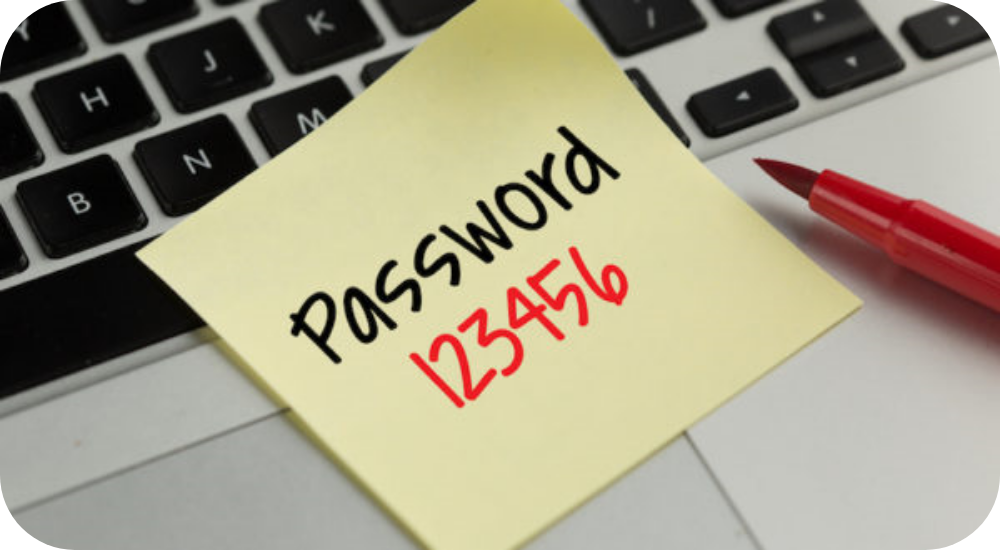 K
H J
B N M
/
Password
123456